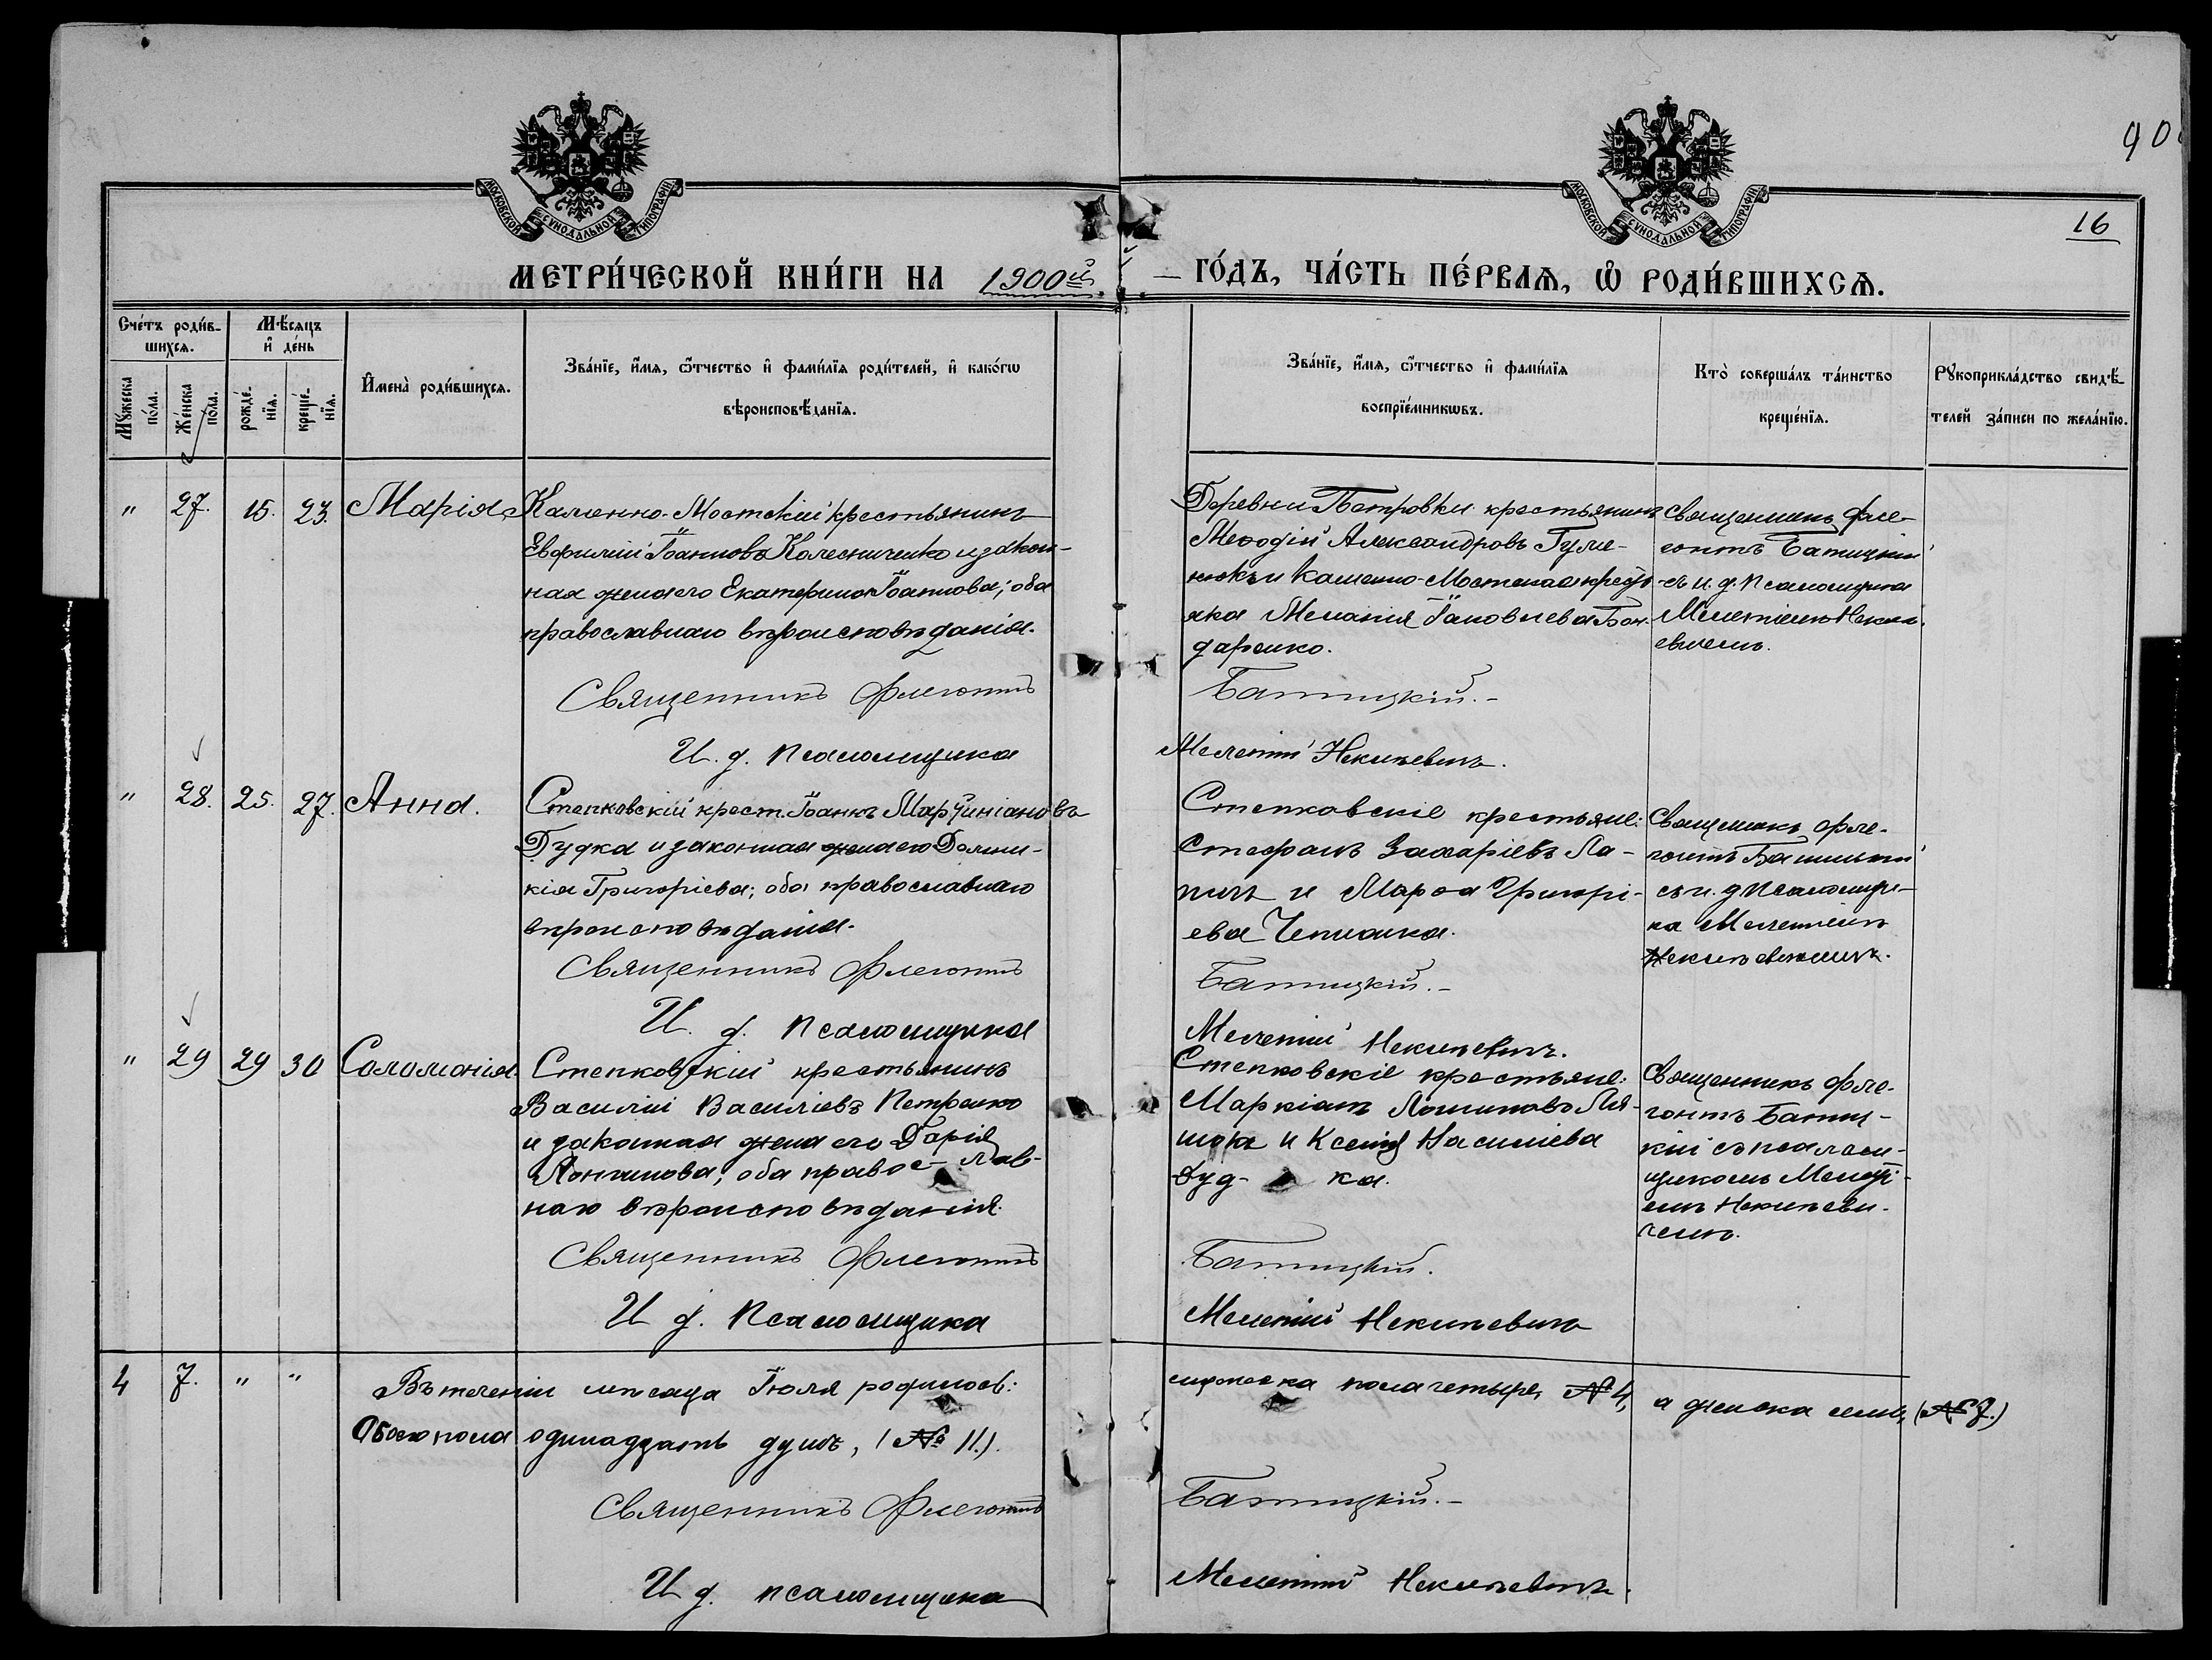 90
16
МОСКОВСКОЙ СѴНОДАЛЬНОЙ ТИПОГРАФІИ
МОСКОВСКОЙ СѴНОДАЛЬНОЙ ТИПОГРАФІИ
МЕТРИ́ЧЕСКОЙ КНИ́ГИ НА 1900й
ГО́ДЪ, ЧА́СТЬ ПЕ́РВАѦ, Ѡ҆ РОДИ́ВШИХСѦ.
Сче́тъ роди́в-
шихсѧ.
Мѣ́сяцъ
и҆ де́нь
Мꙋ́жеска
по́ла.
Же́нска
по́ла.
рожде́-
нїѧ.
креще́-
нїѧ.
И҆мена̀ роди́вшихсѧ.
Зва́нїе, и҆́мѧ, ѻ҆́тчество и҆ фами́лїѧ роди́телей, и҆ како́гѡ
вѣроисповѣ́данїѧ.
Зва́нїе, и҆́мѧ, ѻ҆́тчество и҆ фами́лїѧ
воспрїе́мникѡвъ.
Кто̀ соверша́лъ та́инство
креще́нїѧ.
Рꙋкоприкла́дство свидѣ́-
телей за́писи по жела́нїю.
" 27. 15. 23. Марія
Каменно-Мостскій крестьянинъ
Евфимій Іоанновъ Колесниченко и закон-
ная жена его Екатерина Іоаннова; оба
православнаго вѣроисповѣданія.
Священникъ Флегонтъ
И. д. псаломщика
Деревни Петровки крестьянинъ
Меѳодій Александровъ Гуме-
нюкъ и Каменно-Мостская крестьян-
ка Меланія Іаковлева Бон-
даренко.
Батицкій.-
Мелетій Некипевичъ.
Священникъ Фле-
гонтъ Батицкій
съ и. д. псаломщика
Мелетіемъ Некип-
евичемъ.
" 28. 25. 27. Анна.
Степковскій крест. Іоаннъ Мартиніановъ
Дудка и законная жена его Домни-
кія Григоріева; оба православнаго
вѣроисповѣданія.
Священникъ Флегонтъ
И. д. псаломщика
Степковскіе крестьяне:
Стефанъ Захаріевъ Ла-
пинъ и Марѳа Григорі-
ева
Батицкій.-
Мелетій Некипевичъ.
Священникъ Фле-
гонтъ Батицкій
съ и. д. псаломщи-
ка Мелетіемъ
Некипевичемъ.
" 29 29 30 Соломонія.
Степковскій крестьянинъ
Василій Василіевъ Петренко
и законная жена его Дарія
Лонгинова; оба правос-лав-
наго вѣроисповѣданія.
Священникъ Флегонтъ
И д. псаломщика
Степковскіе крестьяне:
Маркіанъ Лонгиновъ
и Ксенія Василіева
Дуд- ка.
Батицкій.
Мелетій Некипевичъ
Священникъ Фле-
гонтъ Батиц-
кій съ псалом-
щикомъ Мелеті-
емъ Некипеви-
чемъ.
4 7. " "
Въ теченіи мѣсяца Іюля родилось:
мужеска пола четыре, № 4, а женска семь, (№ 7.)
Обоего пола одинадцать душъ, (№ 11.).
Священникъ Флегонтъ
Батицкій.-
И д. псаломщика
Мелетій Некипевичъ.